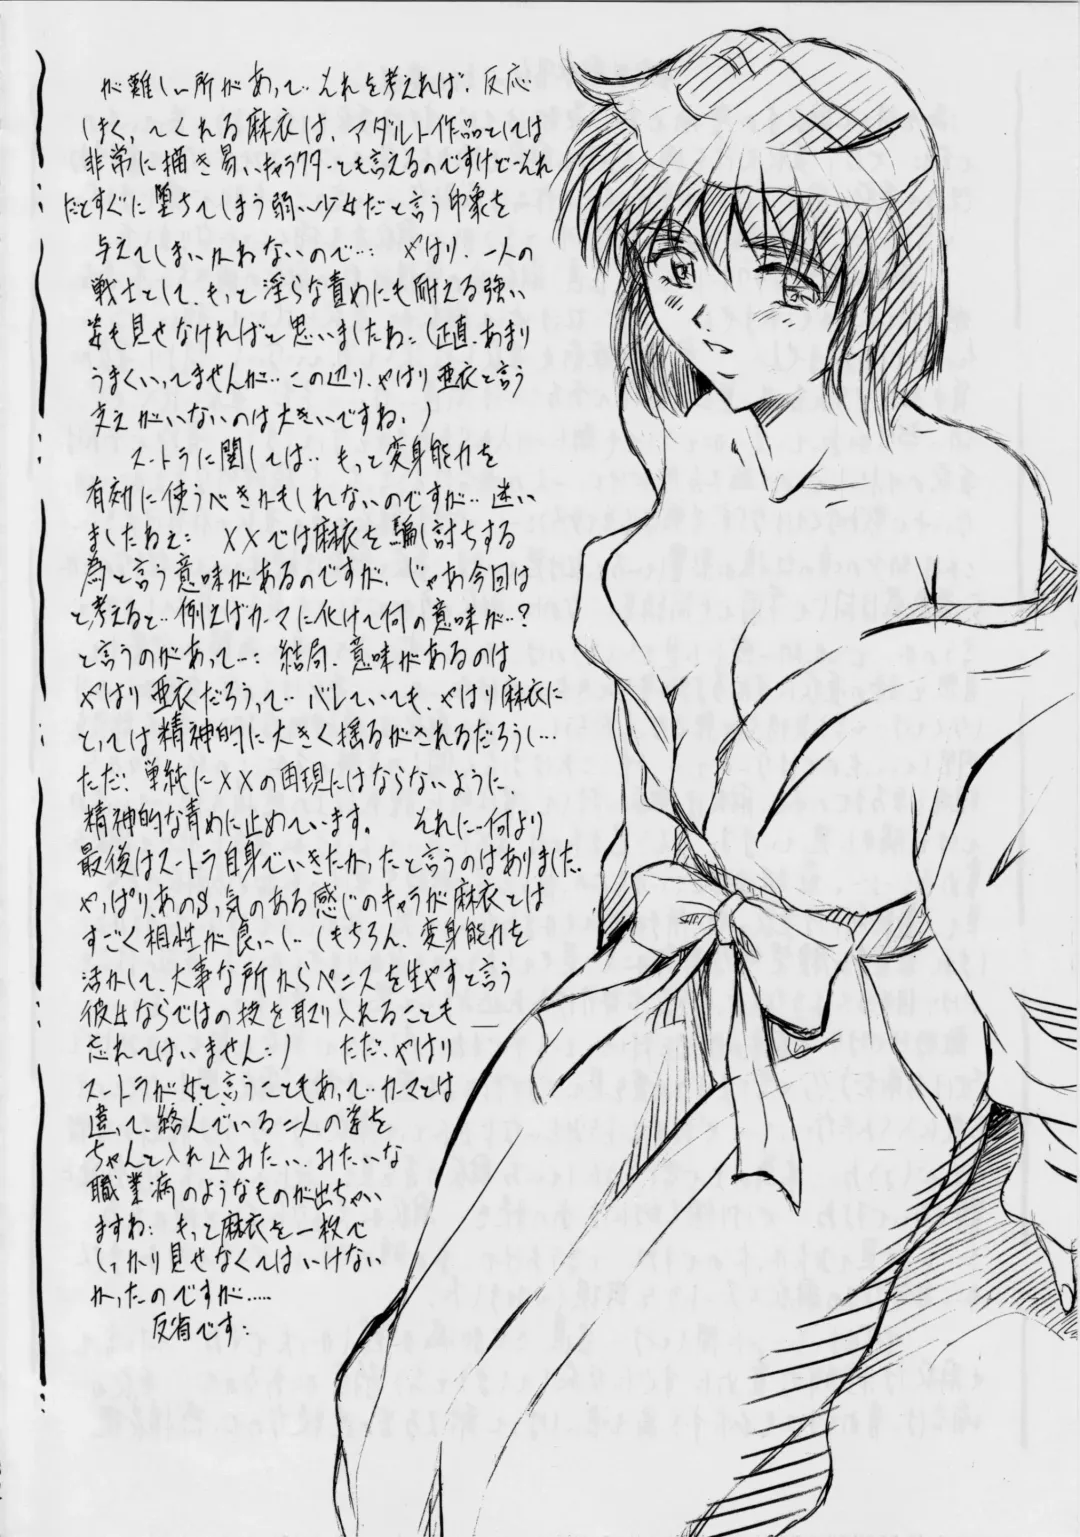 が難しい所があって‥それを考えれば、反応
しまく、てくれる麻衣は、アダルト作品としては
非常に描き易いキャラクターとも言えるのですけど…それ
だとすぐに堕ちてしまう弱い少女だと言う印象を
与えてしまいかねないので…やはり、一人の
戦士として、もっと淫らな責めにも耐える強い
姿も見せなければと思いましたね:(正直、あまり
うまくいってませんが‥この辺り、やはり亜衣と言う
支えがいないのは大きいですね:)
スートラに関しては‥もっと変身能力を
有効に使うべきかもしれないのですが‥迷い
ましたねぇ: XXでは麻衣を騙し討ちする
為と言う意味があるのですが、じゃあ今回は
と考えると‥例えばカーマに化けて何の意味が‥?
と言うのがあって…:結局、意味があるのは
やはり亜衣だろうって‥バレていても、やはり麻衣に
とっては精神的に大きく揺るがされるだろうし…
ただ、単純にXXの再現にはならないように、
精神的な責めに止めています。それに…何より
最後はスートラ自身でいきたかったと言うのはありました。
やっぱり、あのSっ気のある感じのキャラが麻衣とは
すごく相性が良いし‥(もちろん、変身能力を
活かして、大事な所からペニスを生やすと言う
彼女ならではの技を取り入れることも
忘れてはいません:)ただ、やはり
スートラが女と言うこともあって‥カーマとは
違って、絡んでいる二人の姿を
ちゃんと入れ込みたい‥みたいな
職業病のようなものが出ちゃい
ますね:もっと麻衣を一枚で
しっかり見せなくてはいけない
かったのですが.....
反省です: